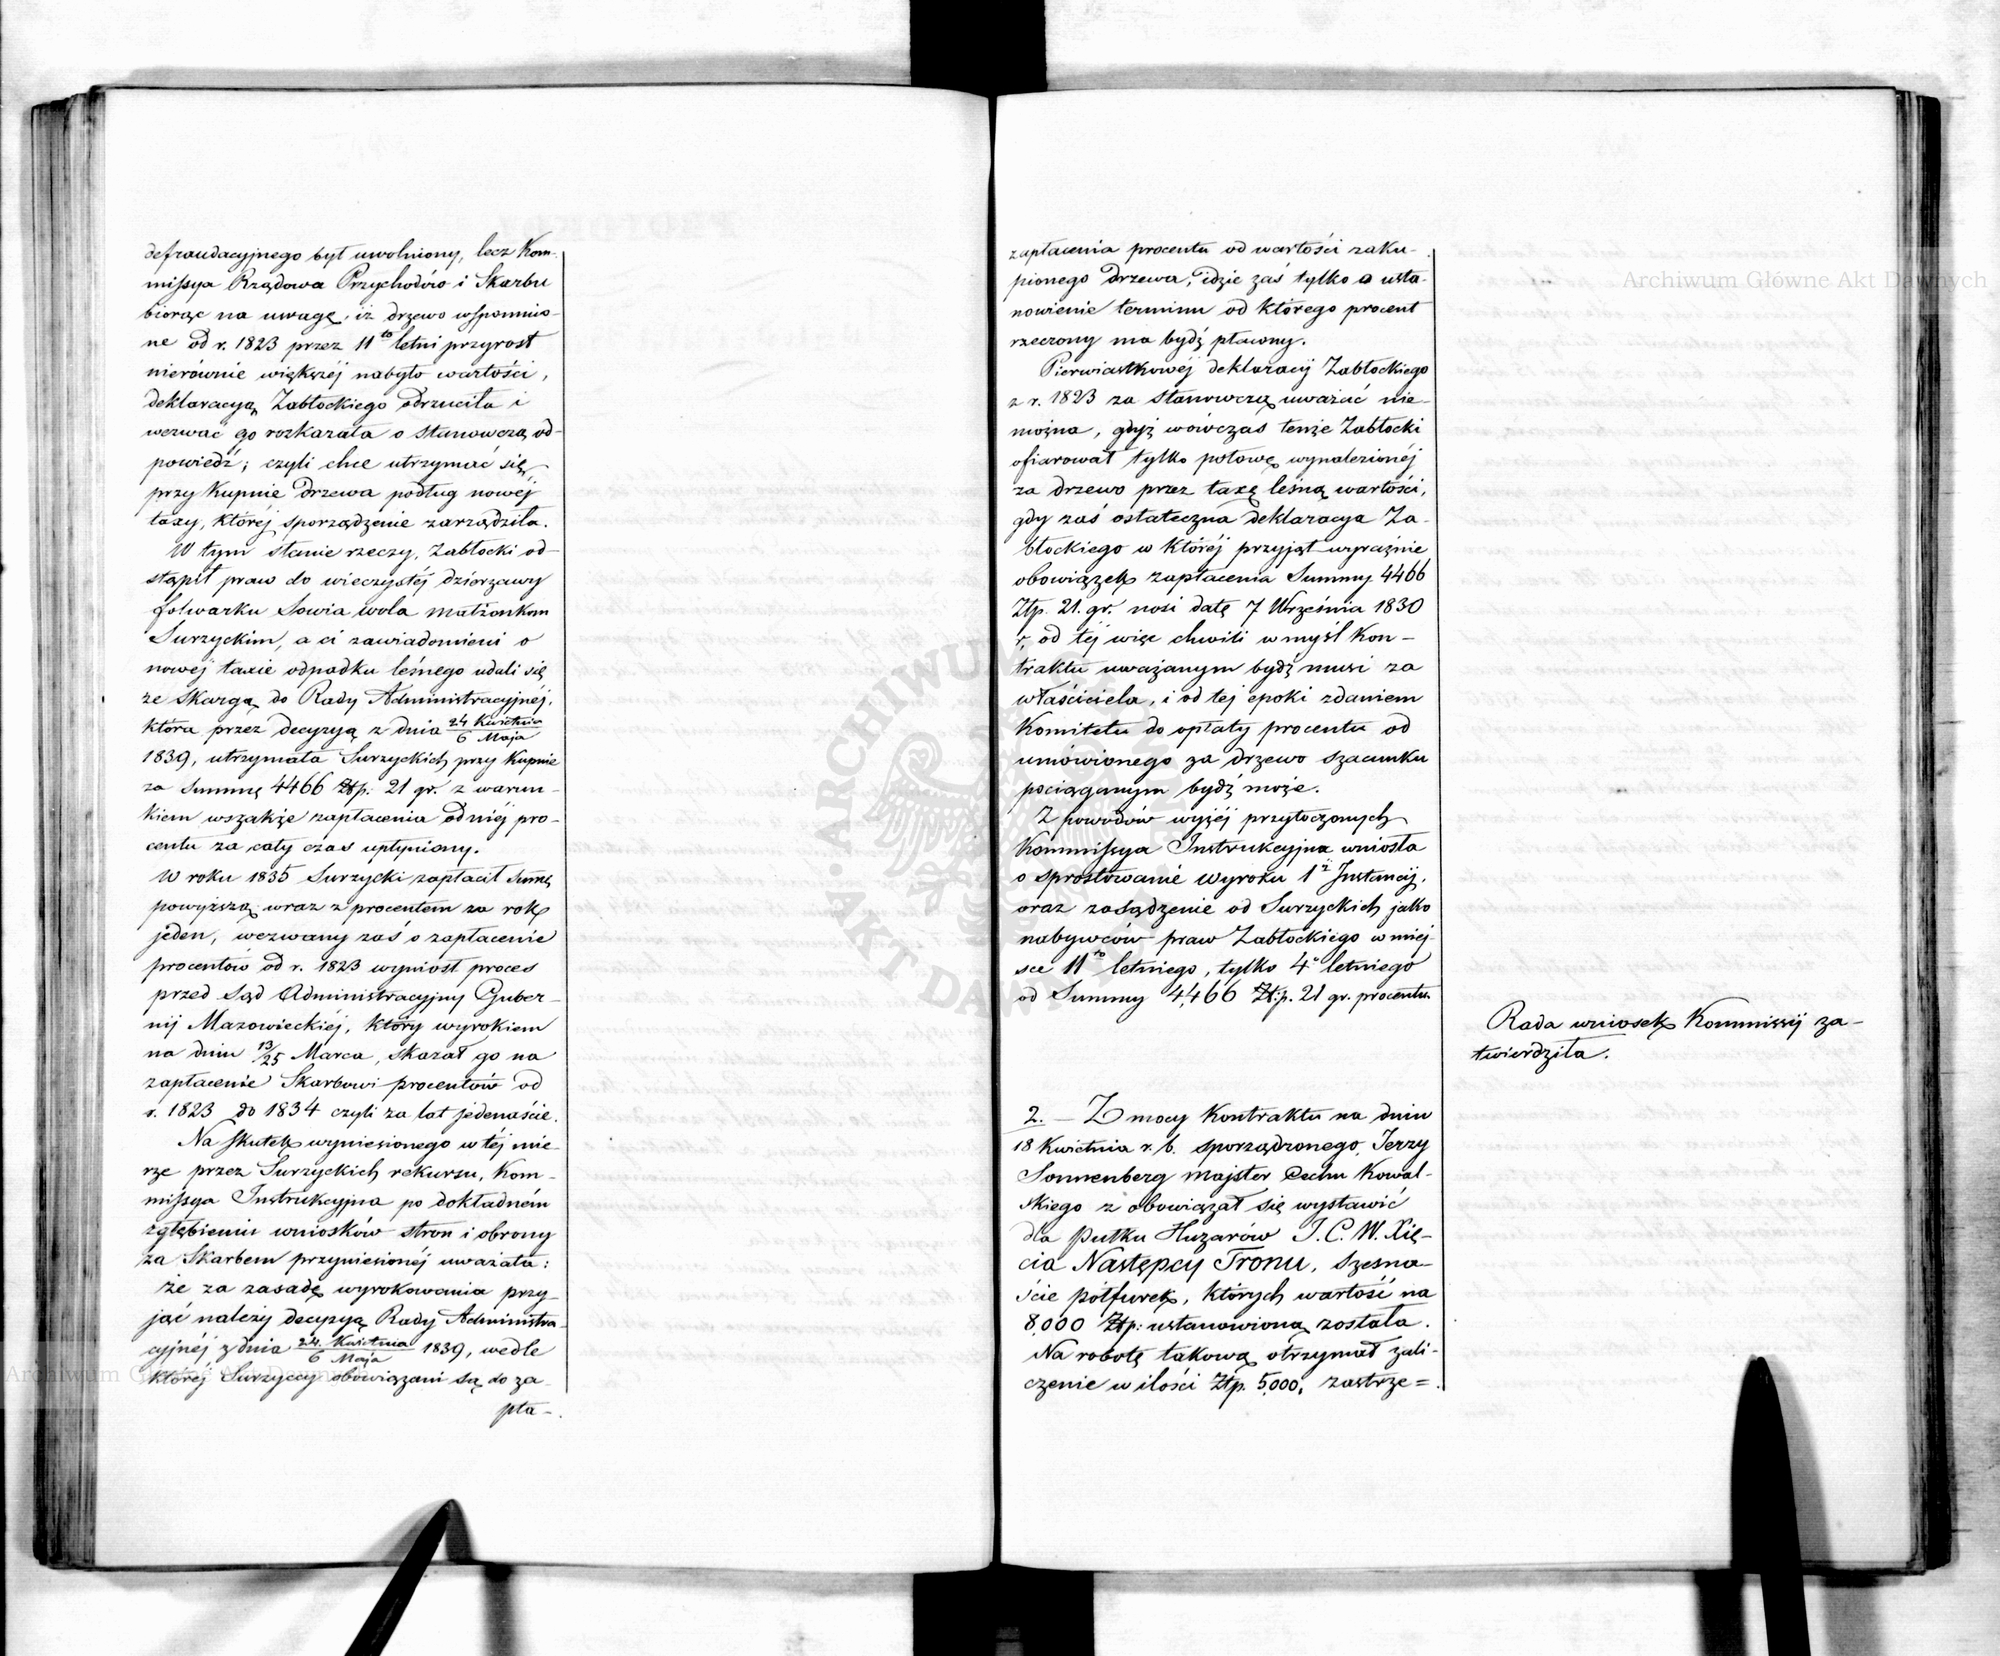 defraudacyjnego był uwolniony, lecz Kom-
missya Rządowa Przychodów i Skarbu
biorąc na uwagę, iż drzewo wspomnio-
ne od r. 1823 przez 11to letni przyrost
nierównie większéj nabyło wartości,
deklaracyą Zabłockiego odrzuciła i
wezwać go rozkazała o stanowczą od-
powiedź; czyli chce utrzymać się
przy kupnie drzewa podług nowéj
taxy, któréj sporządzenie zarządziła.
W tym stanie rzeczy, Zabłocki od-
stąpił praw do wieczystéj dzierżawy
folwarku Sowia wola małżonkom
Surzyckim, a ci zawiadomieni o
nowéj taxie odpadku leśnego udali się
ze skargą do Rady Administracyjnéj,
która przez decyzyą z dnia 24 Kwietnia / 6 Maja
1839, utrzymała Surzyckich przy kupnie
za summę 4466 Złp: 21 gr. z warun-
kiem wszakże zapłacenia od niéj pro-
centu za cały czas upłyniony.
W roku 1835 Surzycki zapłacił summę
powyższą wraz z procentem za rok
jeden, wezwany zaś o zapłacenie
procentów od r. 1823 wyniósł proces
przed Sąd Administracyjny Guber-
nij Mazowieckiéj, który wyrokiem
na dniu 13/25 Marca, skazał go na
zapłacenie Skarbowi procentów od
r. 1823 do 1834 czyli za lat jedenaście.
Na skutek wyniesionego w téj mie-
rze przez Surzyckich rekursu, Kom-
missya Instrukcyjna po dokładném
zgłębieniu wniosków stron i obrony
za Skarbem przyniesionéj uważała:
że za zasadę wyrokowania przy-
jąć należy decyzyą Rady Administra-
cyjnéj z dnia 24 Kwietnia / 6 Maja 1839, wedle
któréj Surzyccy obowiązani są do za-
pła-
zapłacenia procentu od wartości zaku-
pionego drzewa, idzie zaś tylko o usta-
nowienie terminu od którego procent
rzeczony ma bydź płacony.
Pierwiastkowéj deklaracyi Zabłockiego
z r. 1823 za stanowczą uważać nie-
można, gdyż wówczas tenże Zabłocki
ofiarował tylko połowę wynalezionéj
za drzewo przez taxę leśną wartości,
gdy zaś ostateczna deklaracya Za-
błockiego w któréj przyjął wyraźnie
obowiązek zapłacenia Summy 4466
Złp. 21. gr. nosi datę 7 Września 1830
r, od téj więc chwili w myśl Kon-
traktu uważanym bydź musi za
właściciela, i od tej epoki zdaniem
Komitetu do opłaty procentu od
umówionego za drzewo szacunku
pociąganym bydź może.
Z powodów wyżéj przytoczonych
Kommissya Instrukcyjna wniosła
o sprostowanie wyroku 1éj Instancij,
oraz zasądzenie od Surzyckich jako
nabywców praw Zabłockiego w miej-
sce 11to letniego, tylko 4o letniego
od Summy 4,466 Zł:p. 21 gr. procentu.
Rada wniosek Kommissij za-
twierdziła.
2. — Z mocy Kontraktu na dniu
18 Kwietnia r. b. sporządzonego, Jerzy
Sonnenberg majster Cechu Kowal-
skiego z obowiązał się wystawić
dla Pułku Huzarów J. C. W. Xię-
cia Następcy Tronu, szesna-
ście półfurek, których wartość na
8,000 Złp: ustanowioną została.
Na robotę takową otrzymał zali-
czenie w ilości Złp. 5,000, zastrze=
Archiwum Główne Akt Dawnych
Archiwum Główne Akt Dawnych
ARCHIWUM GŁÓWNE AKT DAWNYCH